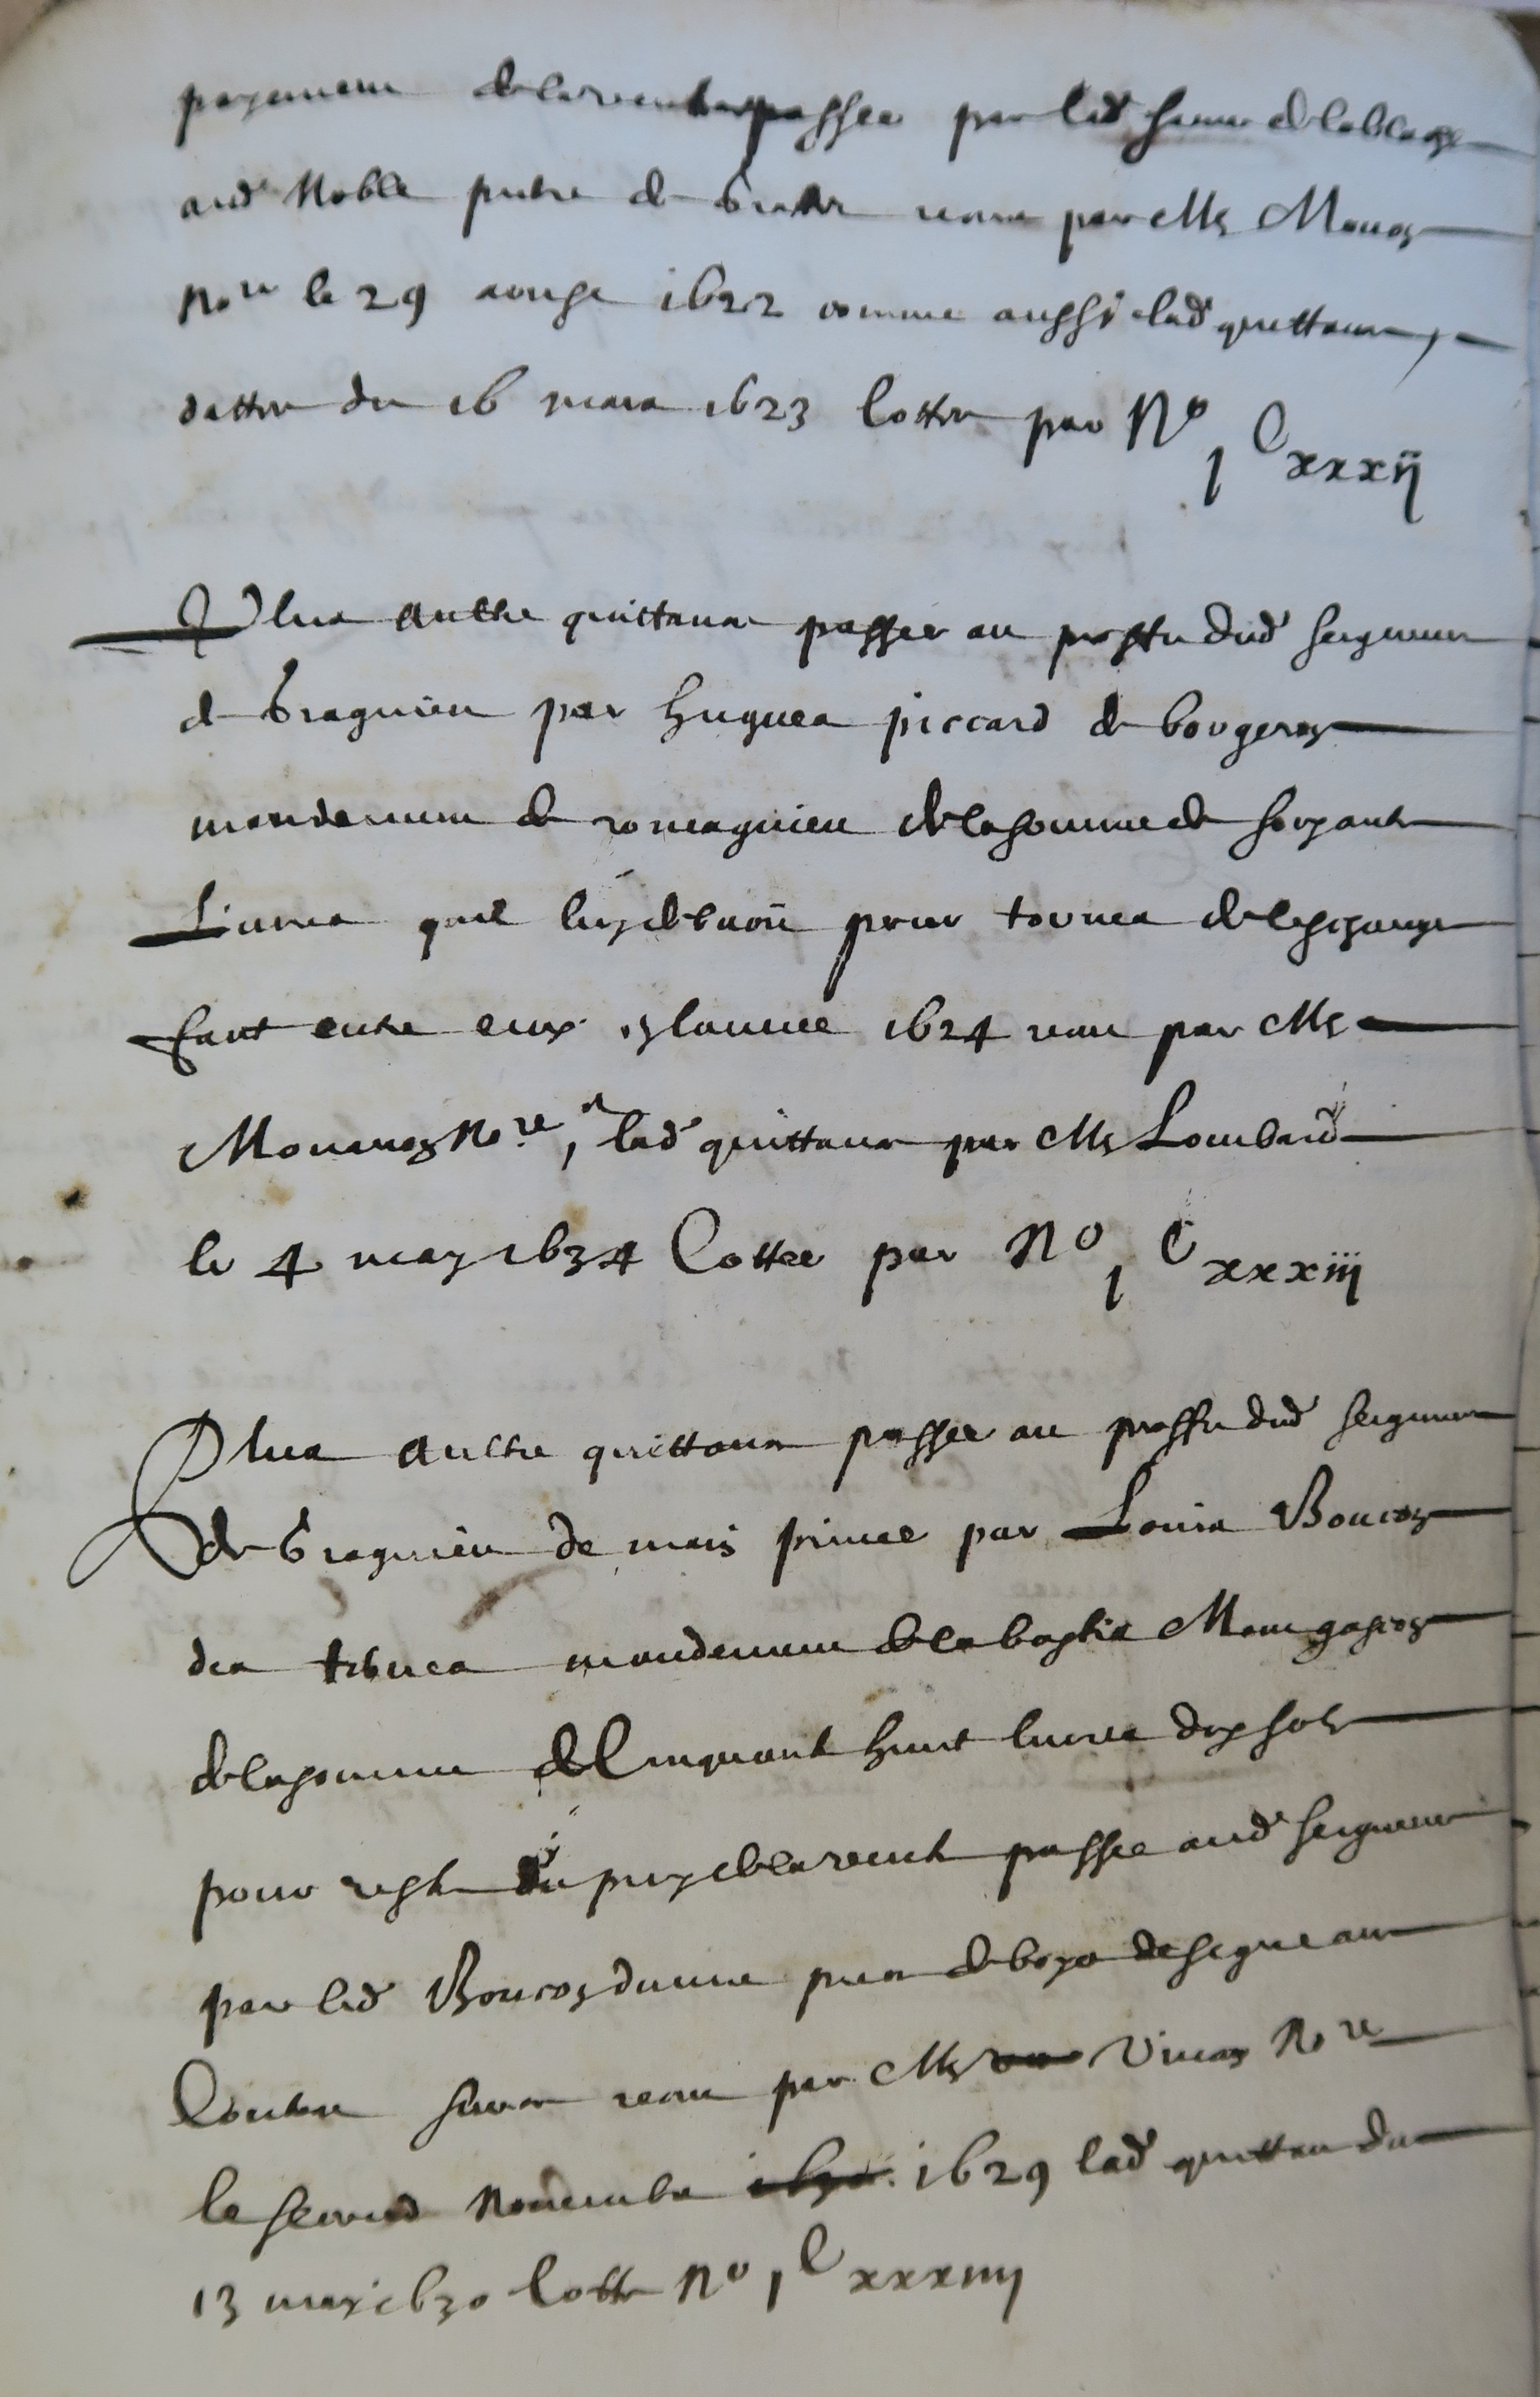 payement de la rente passee par led sieur de
aud Noble pierre de receu par Me
Nore le 29 aougst 1622 comme aussi lad quittance,
dattee du 16 mars 1623 Cottee par No 1 C xxxii
Plus aultre quittance passee au proffit dud seigneur
de Braguieu par hugues piccard de bougerey
mandement de romagnieu de la somme de soixante
Liures quil luy debuoit pour tornes de leschange
faict entre eux, lannee 1624 receu par Me
Nore, lad quittance par Me Lombard
le 4 may 1634 Cottee par No 1 C xxxiii
Plus aultre quittance passee au proffit dud seigneur
de Braguieu de mais prince par Louis Boucoz
des mandement de la bastie Montgascoz
de la somme de Cinquante huict liures dix solz
pour reste du prix de la vente passee aud seigneur
par led Boucoz dunne piece de boys
receu par Me Nore
le second Novembre 1629 lad quittance du
13 may 1630 Cottee No 1 C xxxiiii